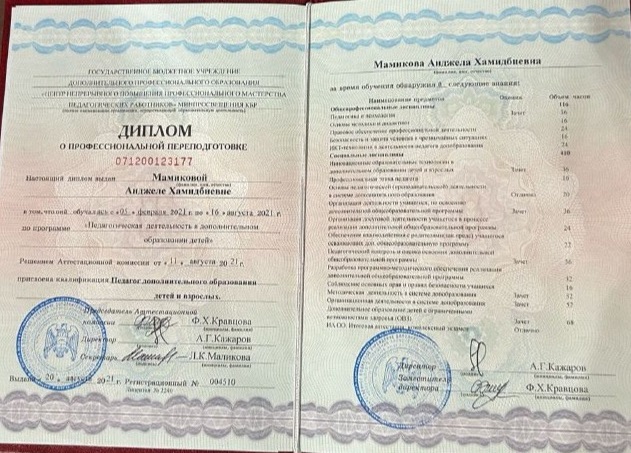 ГОСУДАРСТВЕННОЕ БЮДЖЕТНОЕ УЧРЕЖДЕНИЕ
ДОПОЛНИТЕЛЬНОГО ПРОФЕССИОНАЛЬНОГО ОБРАЗОВАНИЯ
«ЦЕНТР НЕПРЕРЫВНОГО ПОВЫШЕНИЯ ПРОФЕССИОНАЛЬНОГО МАСТЕРСТВА
ПЕДАГОГИЧЕСКИХ РАБОТНИКОВ» МИНПРОСВЕЩЕНИЯ КБР
ДИПЛОМ
О ПРОФЕССИОНАЛЬНОЙ ПЕРЕПОДГОТОВКЕ
071200123177
Настоящий диплом выдан Мамиковой
(фамилия, имя, отчество)
Анджеле Хамидбиевне
в том, что он обучалась с «01» февраля 2021 г. по «16» августа 2021 г.
по программе «Педагогическая деятельность в дополнительном
образовании детей»
Решением Аттестационной комиссии от «11» августа 2021 г.
присвоена квалификация Педагог дополнительного образования
детей и взрослых.
Председатель Аттестационной
комиссии Ф.Х.Кравцова
Директор А.Г.Кажаров
Секретарь Л.К.Маликова
Выдано 20 августа 2021 г. Регистрационный № 004510
Лицензия № 1246
Мамикова Анджела Хамидбиевна
(фамилия, имя, отчество)
за время обучения обнаружил а следующие знания:
Наименование предметов Оценки Объем часов
Общепрофессиональные дисциплины 116
Педагогика и психология Зачет 36
Основы экологии и 16
Правовое обеспечение профессиональной деятельности 24
Безопасность и защита человека в чрезвычайных ситуациях 16
ИКТ-технологии в деятельности педагога допобразования 24
Специальные дисциплины
Инновационные образовательные технологии в
дополнительном образовании детей и взрослых Зачет 36
Профессиональная этика педагога
Основы педагогической деятельности
в системе допобразования Отлично
Организация деятельности учащихся, по освоению
дополнительной общеобразовательной программы Зачет
Организация досуговой деятельности учащихся в процессе
реализации дополнительной общеобразовательной программы 24
Обеспечение взаимодействия с родителями
осваивающих доп. общеобразовательную программу
Педагогический контроль и оценка освоения дополнительной
общеобразовательной программы Зачет
Разработка программно-методического обеспечения реализации
дополнительной общеобразовательной программы
Соблюдение основных прав и правил безопасности учащихся
Методическая деятельность в системе допобразования Зачет 52
Организационная деятельность в системе допобразования Зачет
Дополнительное образование детей с ограниченными
возможностями здоровья (ОВЗ) Зачет 68
Итоговая аттестация, комплексный экзамен Отлично
Директор А.Г.Кажаров
Заместитель
директора Ф.Х.Кравцова